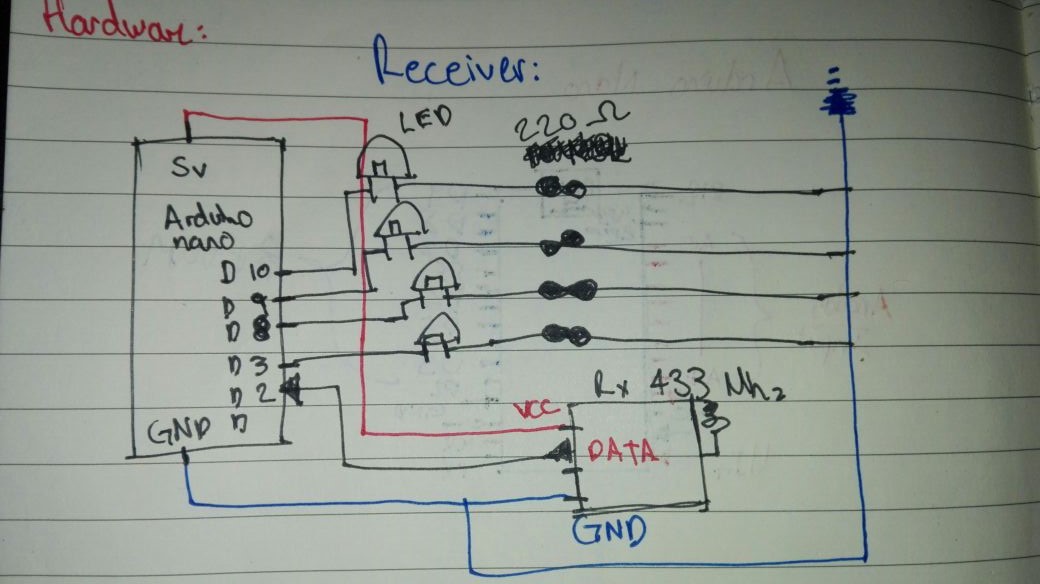 Hardware:
Receiver:
LED
220 Ω
5v
Arduino
nano
D 10
D 9
D 8
D 3
D 2
D
GND
Rx 433 Mhz
VCC
DATA
GND